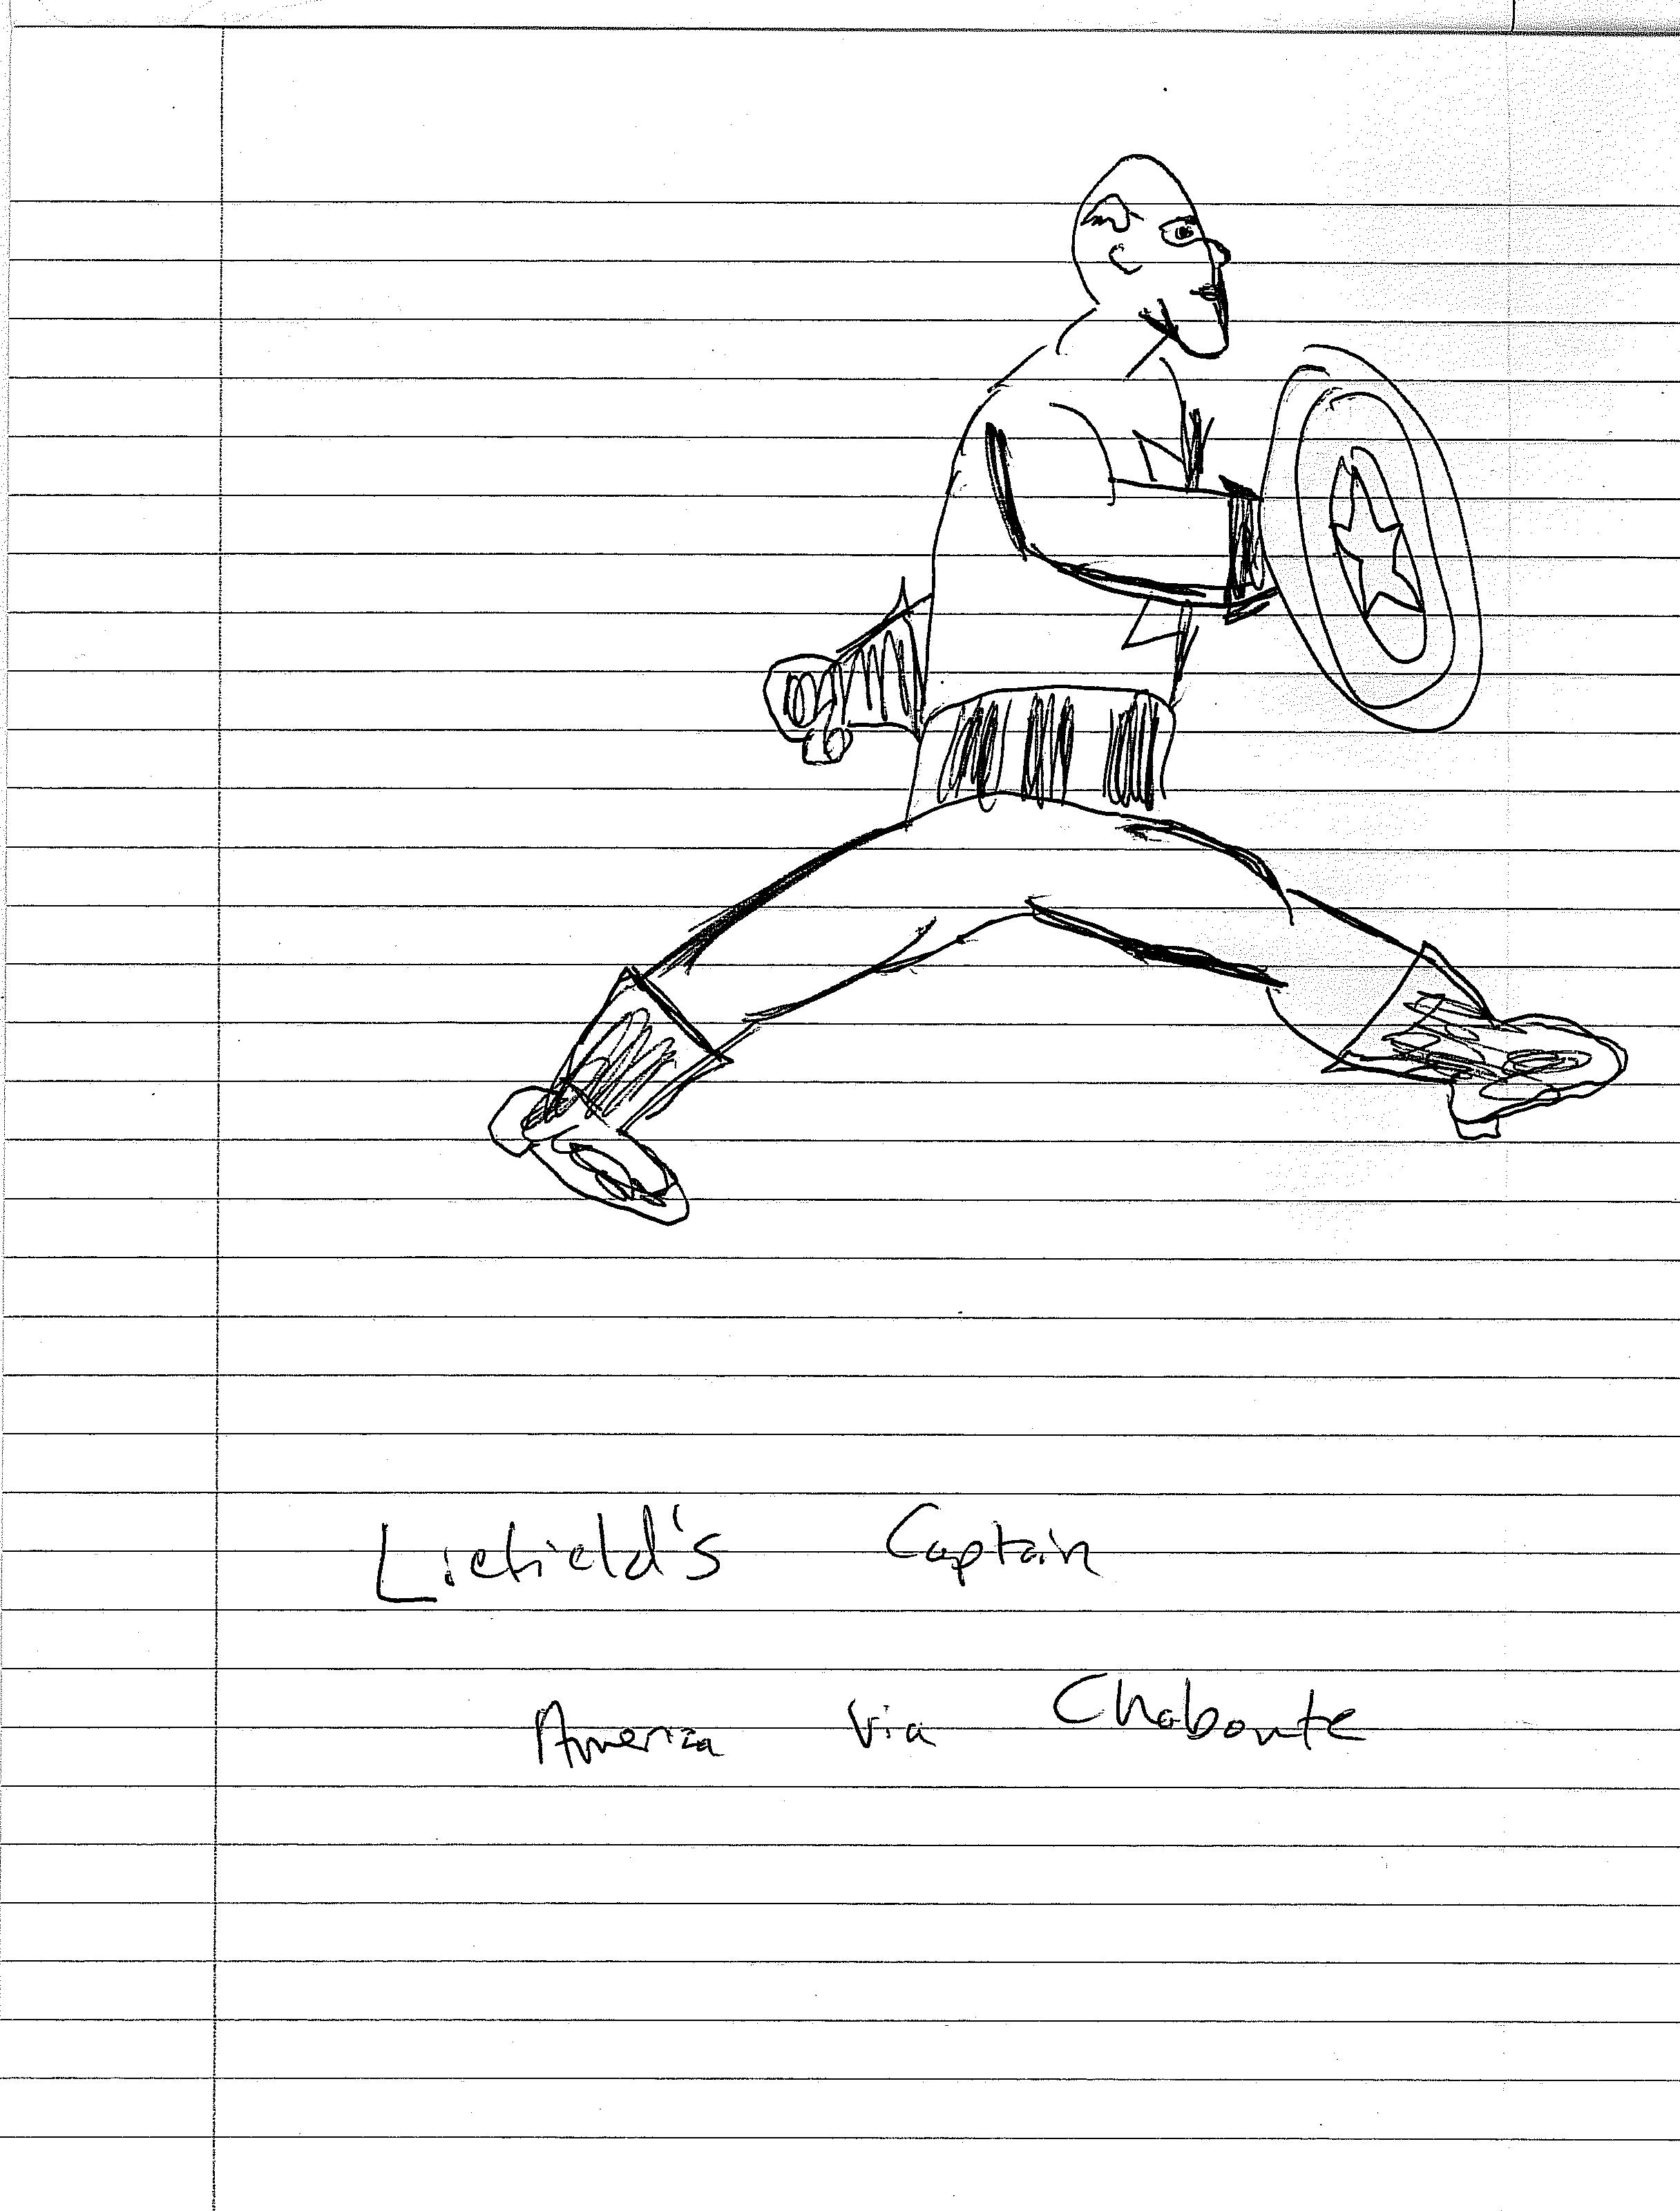 Liefield's Captain
America via Chaboute